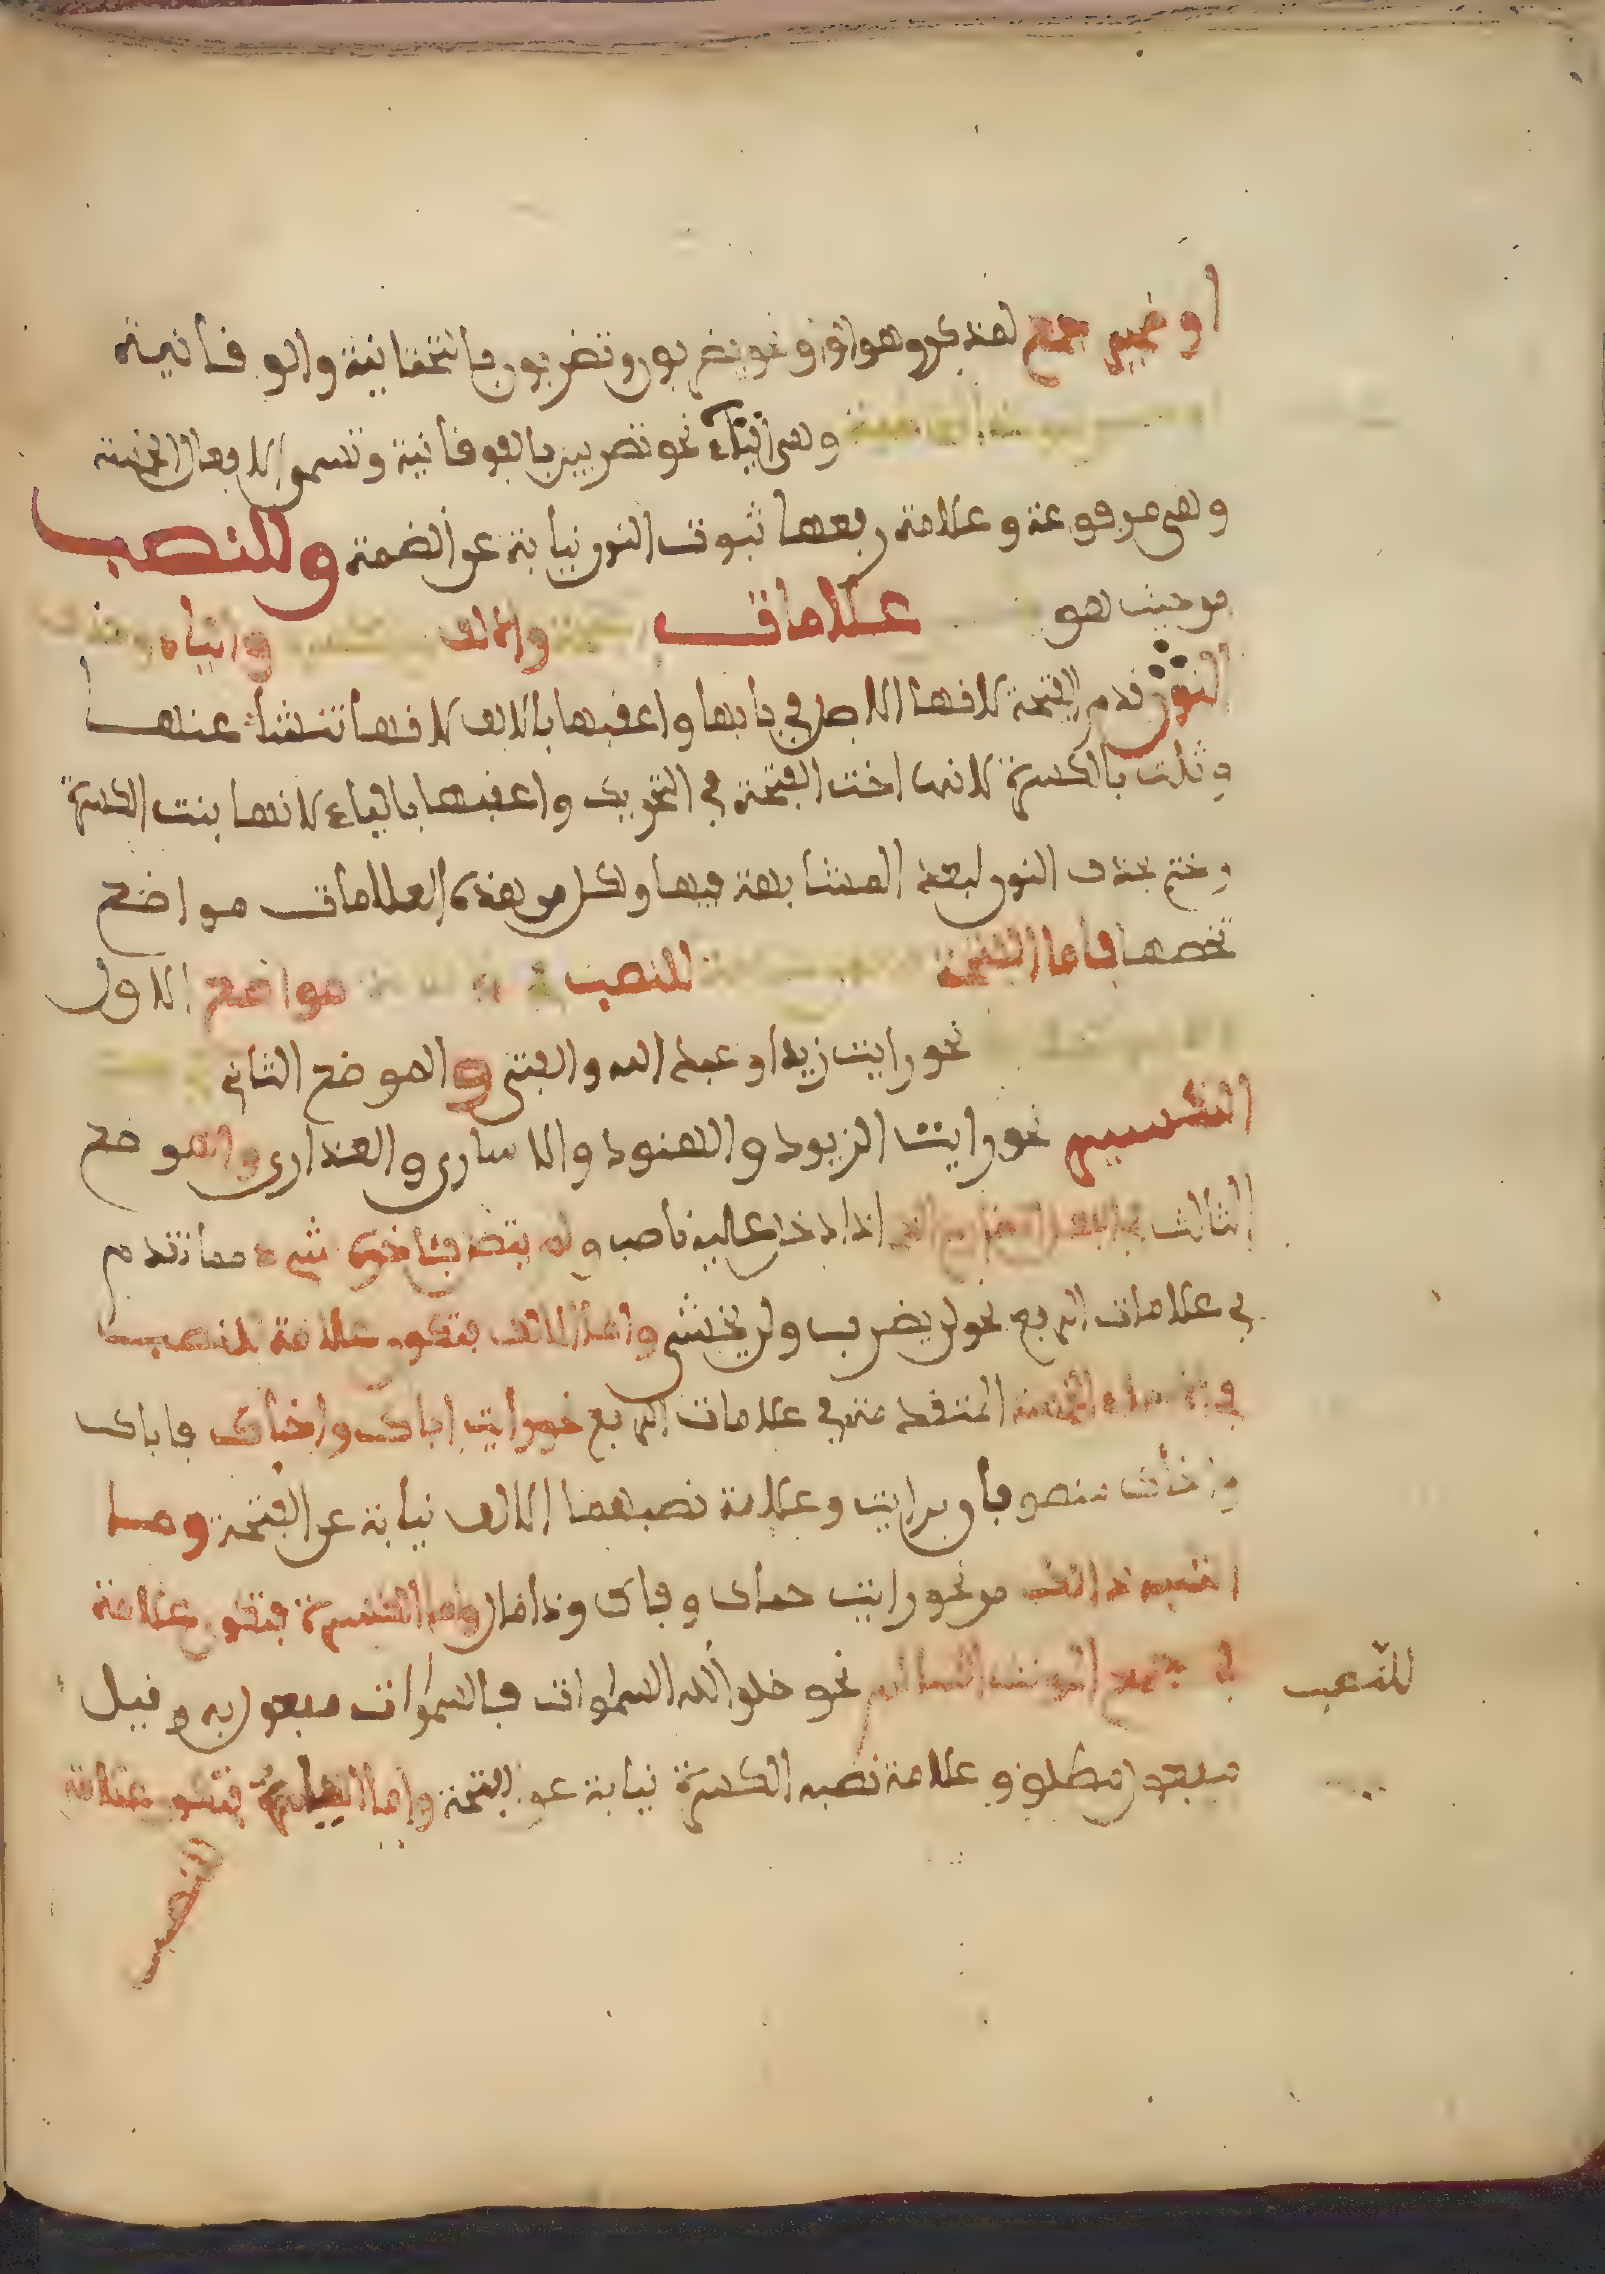 او ضمير جمع لمذكر وهو الواو نحو يضربون وتضربون بالتحتانية والفوقانية
وهي الياء نحو تضربين بالفوقانية وتسمى الافعال الخمسة
وهي مرفوعة وعلامة رفعها ثبوت النون نيابة عن الضمة وللنصب
من حيث هو علامات والالف والياء وحذف
النون قدم الفتحة لانها الاصل في بابها واعقبها بالالف لانها تنشأ عنها
وثلث بالكسرة لانها اخت الفتحة في التحريك واعقبها بالياء لانها بنت الكسرة
وختم بحذف النون لبعد المشابهة فيها ولكل من هذه العلامات مواضع
تخصها فاما الفتحة للنصب مواضع الاول
نحو رايت زيدا وعبد الله والفتى والموضع الثاني
التكسير نحو رايت الزيود والهنود والاسارى والعذارى والموضع
الثالث الفعل المضارع اذا دخل عليه ناصب ولم يتصل باخره شيء مما تقدم
في علامات الرفع نحو لن يضرب ولن يخشى واما الالف فتكون علامة للنصب
في الاسماء الخمسة المتقدمة في علامات الرفع نحو رايت اباك واخاك فاباك
واخاك منصوبان برايت وعلامة نصبهما الالف نيابة عن الفتحة وما
اشبه ذالك من نحو رايت حماك وفاك وذا مال واما الكسرة فتكون علامة
للنصب
في جمع المونث السالم نحو خلق الله السموات فالسموات مفعول به وقيل
مفعول مطلق وعلامة نصبه الكسرة نيابة عن الفتحة واما الياء فتكون علامة
للنصب